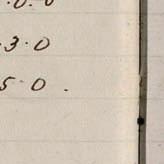 .0.0
.3.0
5.0.